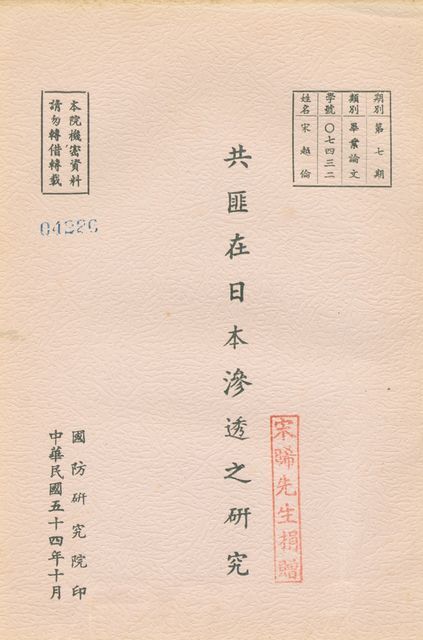 期別 第七期
類別 畢業論文
學號 〇七四三二
姓名 宋越倫
共匪在日本滲透之研究
宋晞先生捐贈
本院機密資料
請勿轉借轉載
04226
國防研究院印
中華民國五十四年十月